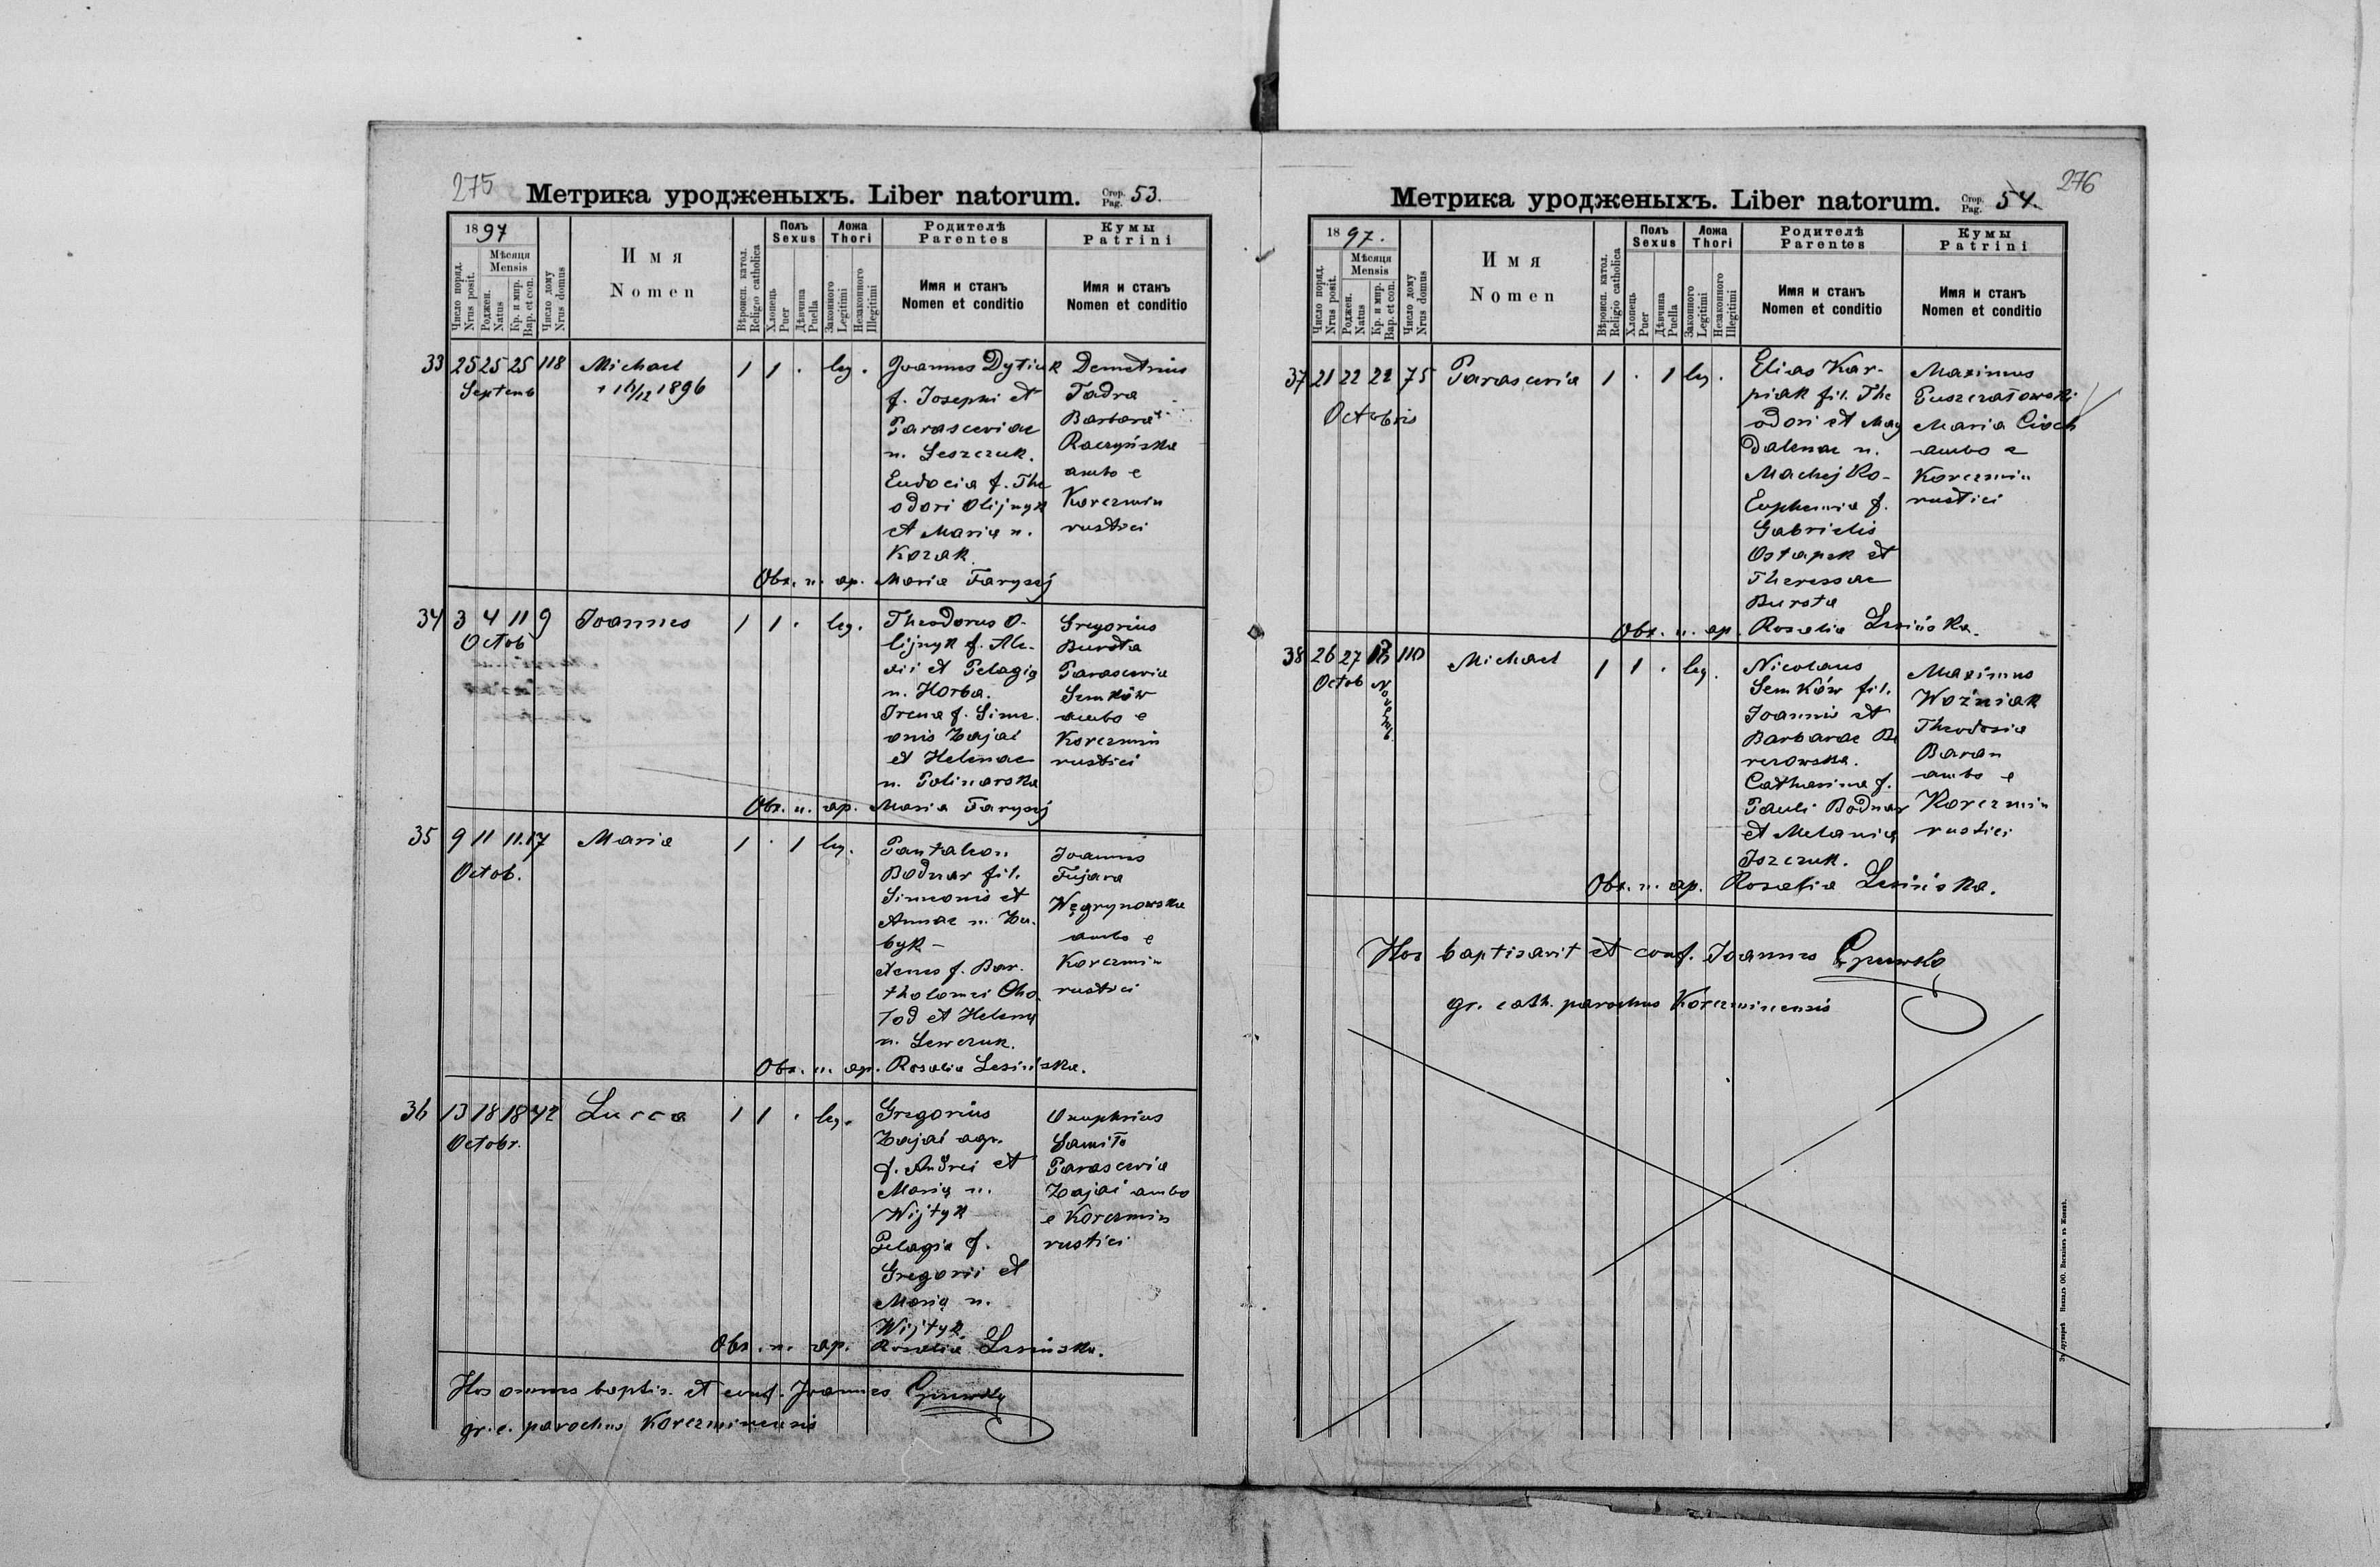 275
Метрика уродженыхъ. Liber natorum. Стор. Pag. 53.
1897
Число поряд. Nrus posit.
Мѣсяця Mensis
Рожден. Natus
Кр. и мир. Bap. et con.
Число дому Nrus domus
Имя
Nomen
Вѣроисп. катол. Religio catholica
Полъ Sexus
Хлопець Puer
Дѣвчина Puella
Ложа Thori
Законного Legitimi
Незаконного Illegitimi
Родителѣ
Parentes
Имя и станъ
Nomen et conditio
Кумы
Patrini
Имя и станъ
Nomen et conditio
33 25 25 25 118 Michael 1 1 . leg.
Septemb 1896
Joannes Dytiuk
f. Josephi et
Parasceviae
n. Leszczuk.
Eudocia f. The
odori Olijnyk
et Maria n.
Kozak.
Demetrius
Fadra
Barbara
Raczyńska
ambo e
Korczmin
rustici
Obs. n. ap. Maria Farysej
34 3 4 11 9 Joannes 1 1 . leg.
Octob
Theodorus O-
lijnyk f. Ale-
xii et Pelagię
n. Horba.
Irena f. Sime-
onis Zajać
et Helenae
n. Polinarska
Gregorius
Bursta
Parascevia
Semków
ambo e
Korczmin
rustici
Obs. n. ap. Maria Farysej
35 9 11 11 17 Maria 1 . 1 leg.
Octob.
Pantaleon
Bodnar fil.
Simeonis et
Annae n. Zu-
byk -
f. Bar-
tholomei Cho
łod et Helenę
n. Lewczuk.
Joannes
Fujara
Węgrynowska
ambo e
Korczmin
rustici
Obs. n. ap. Rosalia Lesińska.
36 13 18 18 42 Lucca 1 1 . leg.
Octobr.
Gregorius
Zajać agr.
f. Andrei et
Marię n.
Wijtyk
Pelagia f.
Gregorii et
Marię n.
Wijtyk.
Onuphrius
Samiło
Parascevia
Zajać ambo
e Korczmin
rustici
Obs. n. ap. Rosalia Lesińska.
Hos omnes baptis. et conf. Joannes
gr. c. parochus Korczminensis
276
Метрика уродженыхъ. Liber natorum. Стор. Pag. 54.
1897.
Число поряд. Nrus posit.
Мѣсяця Mensis
Рожден. Natus
Кр. и мир. Bap. et con.
Число дому Nrus domus
Имя
Nomen
Вѣроисп. катол. Religio catholica
Полъ Sexus
Хлопець Puer
Дѣвчина Puella
Ложа Thori
Законного Legitimi
Незаконного Illegitimi
Родителѣ
Parentes
Имя и станъ
Nomen et conditio
Кумы
Patrini
Имя и станъ
Nomen et conditio
37 21 22 22 75 Parascevia 1 . 1 leg.
Octobris
Elias Kar-
piak fil. The
odori et Mag
dalenae n.
Machejko-
Euphemia f.
Gabrielis
Ostapek et
Theressae
Bursta
Maximus
Puszczałowski
Maria Cioch
ambo e
Korczmin
rustici
Obs. n. ap. Rosalia Lesińska.
38 26 27 110 Michael 1 1 . leg.
Octob Novemb.
Nicolaus
Semków fil.
Joannis et
Barbarae Be
rezowska.
Catharina f.
Pauli Bodnar
et Melanię
Joszczuk.
Maximus
Woźniak
Theodosia
Baran
ambo e
Korczmin
rustici
Obs. n. ap. Rosalia Lesińska.
Hos baptisavit et conf. Joannes
gr. cath. parochus Korczminensis